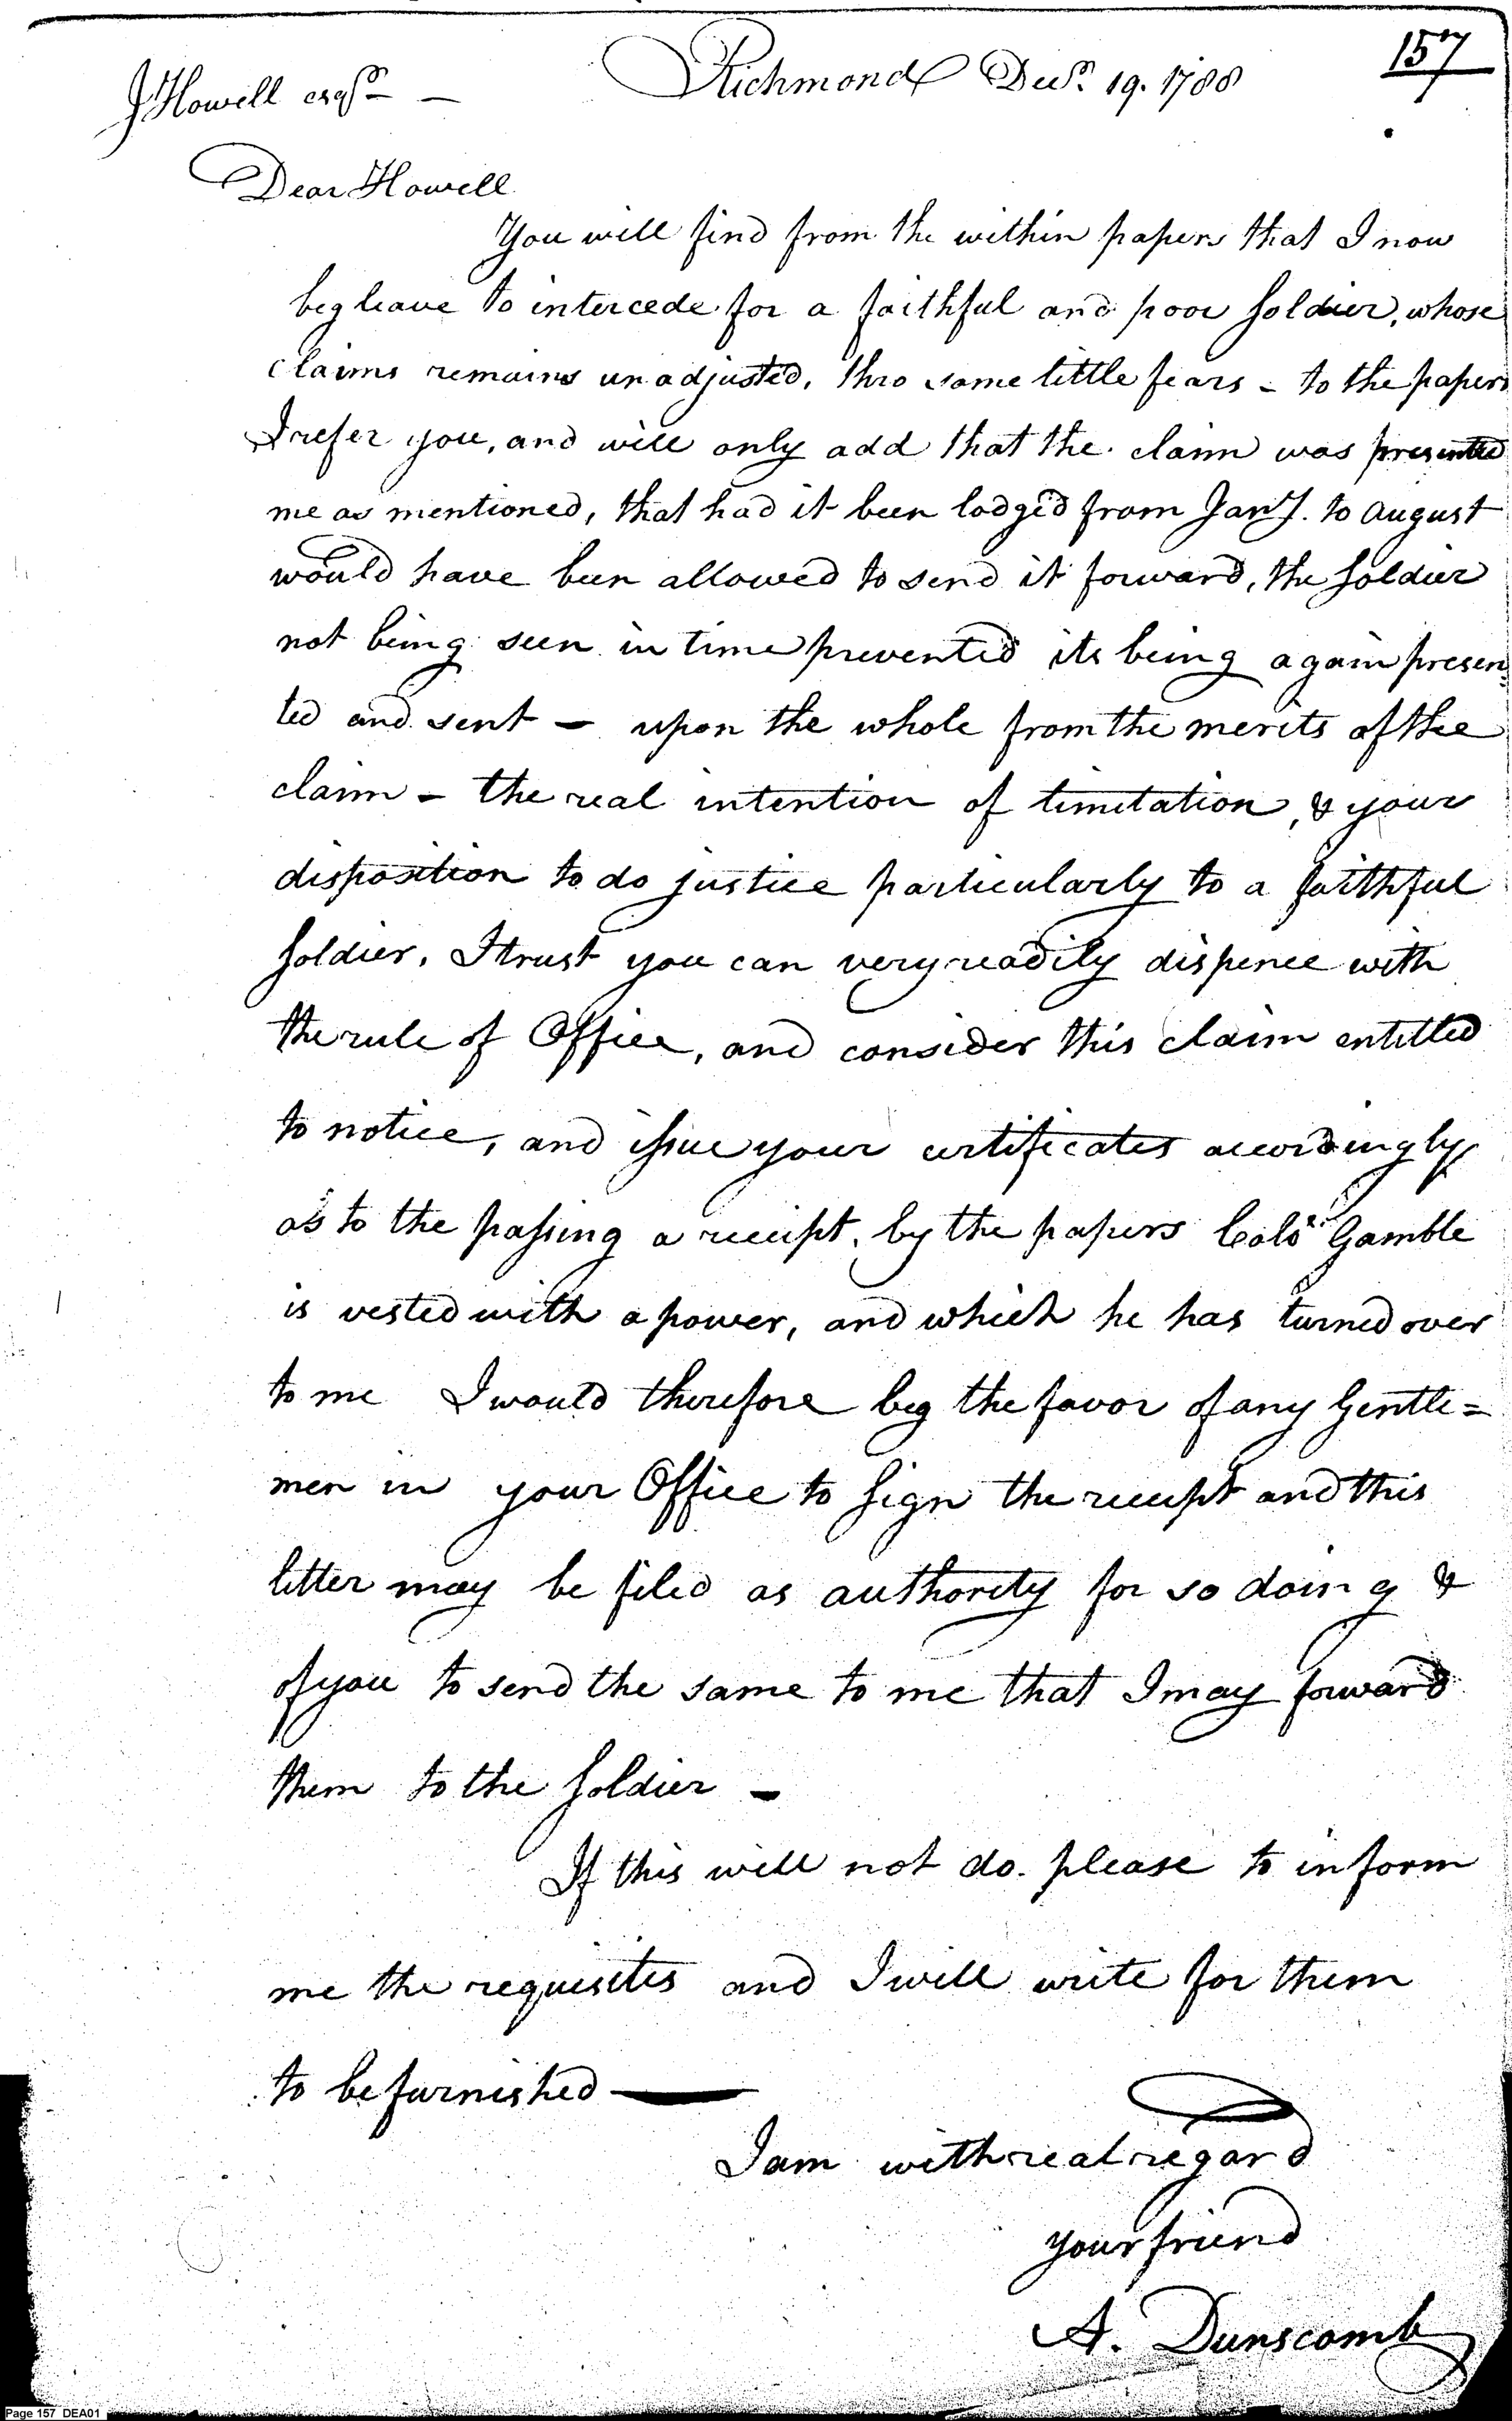 157
Richmond Decr. 19. 1788
J Howell esqr —
Dear Howell
You will find from the within papers that I now
beg leave to intercede for a faithful and poor soldier, whose
claims remains unadjusted, thro some little fears - to the papers
I refer you, and will only add that the claim was presented
me as mentioned, that had it been lodged from Jany. to August
would have been allowed to send it forward, the soldier
not being seen in time prevented its being again presen
ted and sent — upon the whole from the merits of the
claim - the real intention of limitation, & your
disposition to do justice particularly to a faithful
soldier, I trust you can very readily dispence with
the rule of Office, and consider this claim entitled
to notice, and issue your certificates accordingly
as to the passing a receipt, by the papers Colo Gamble
is vested with a power, and which he has turned over
to me I would therefore beg the favor of any Gentle=
men in your Office to sign the receipt and this
letter may be filed as authority for so doing &
of you to send the same to me that I may forward
them to the soldier —
If this will not do. please to inform
me the requisites and I will write for them
to be furnished —
I am with real regard
your friend
A. Dunscomb
Page 157 DEA01